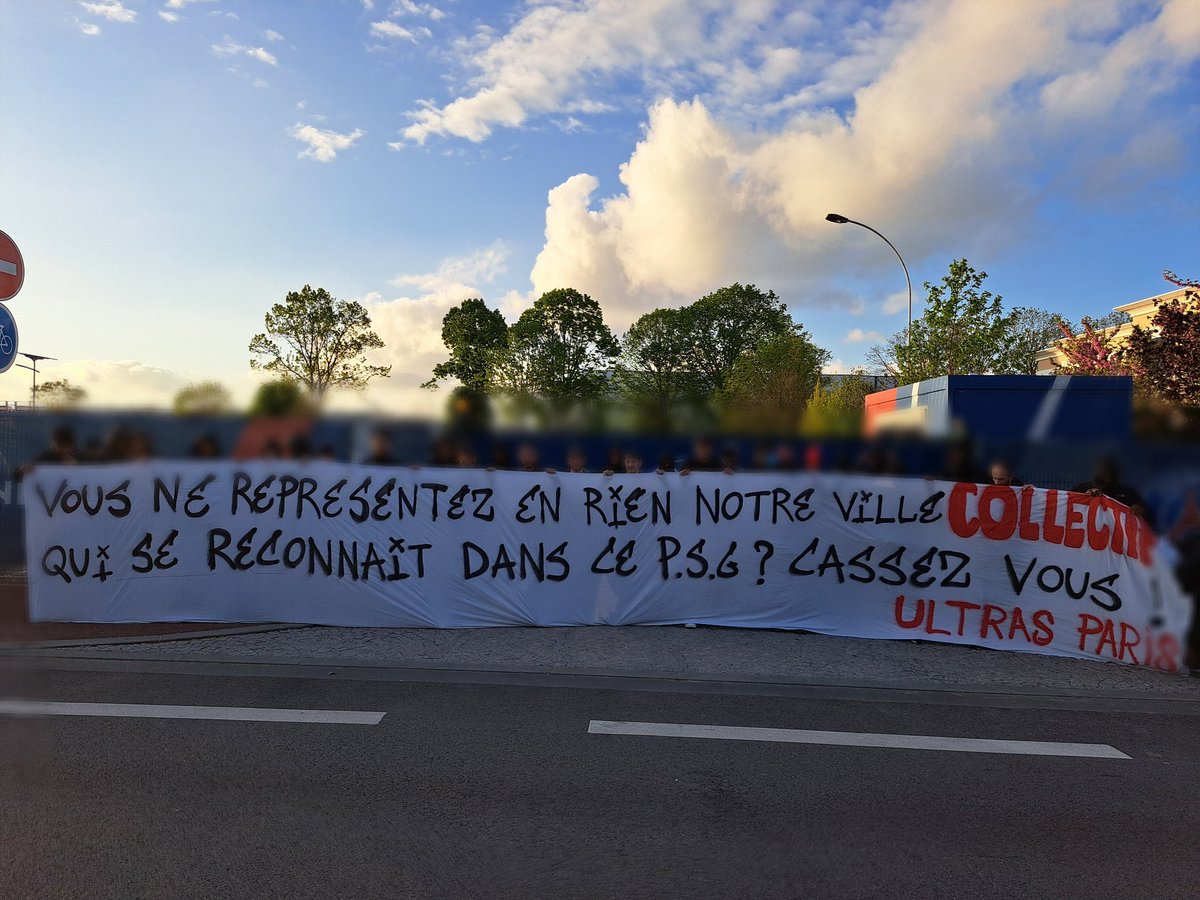 VOUS NE REPRESENTEZ EN RIEN NOTRE VILLE COLLECTIF
QUI SE RECONNAIT DANS CE P.S.G? CASSEZ VOUS
ULTRAS PARIS